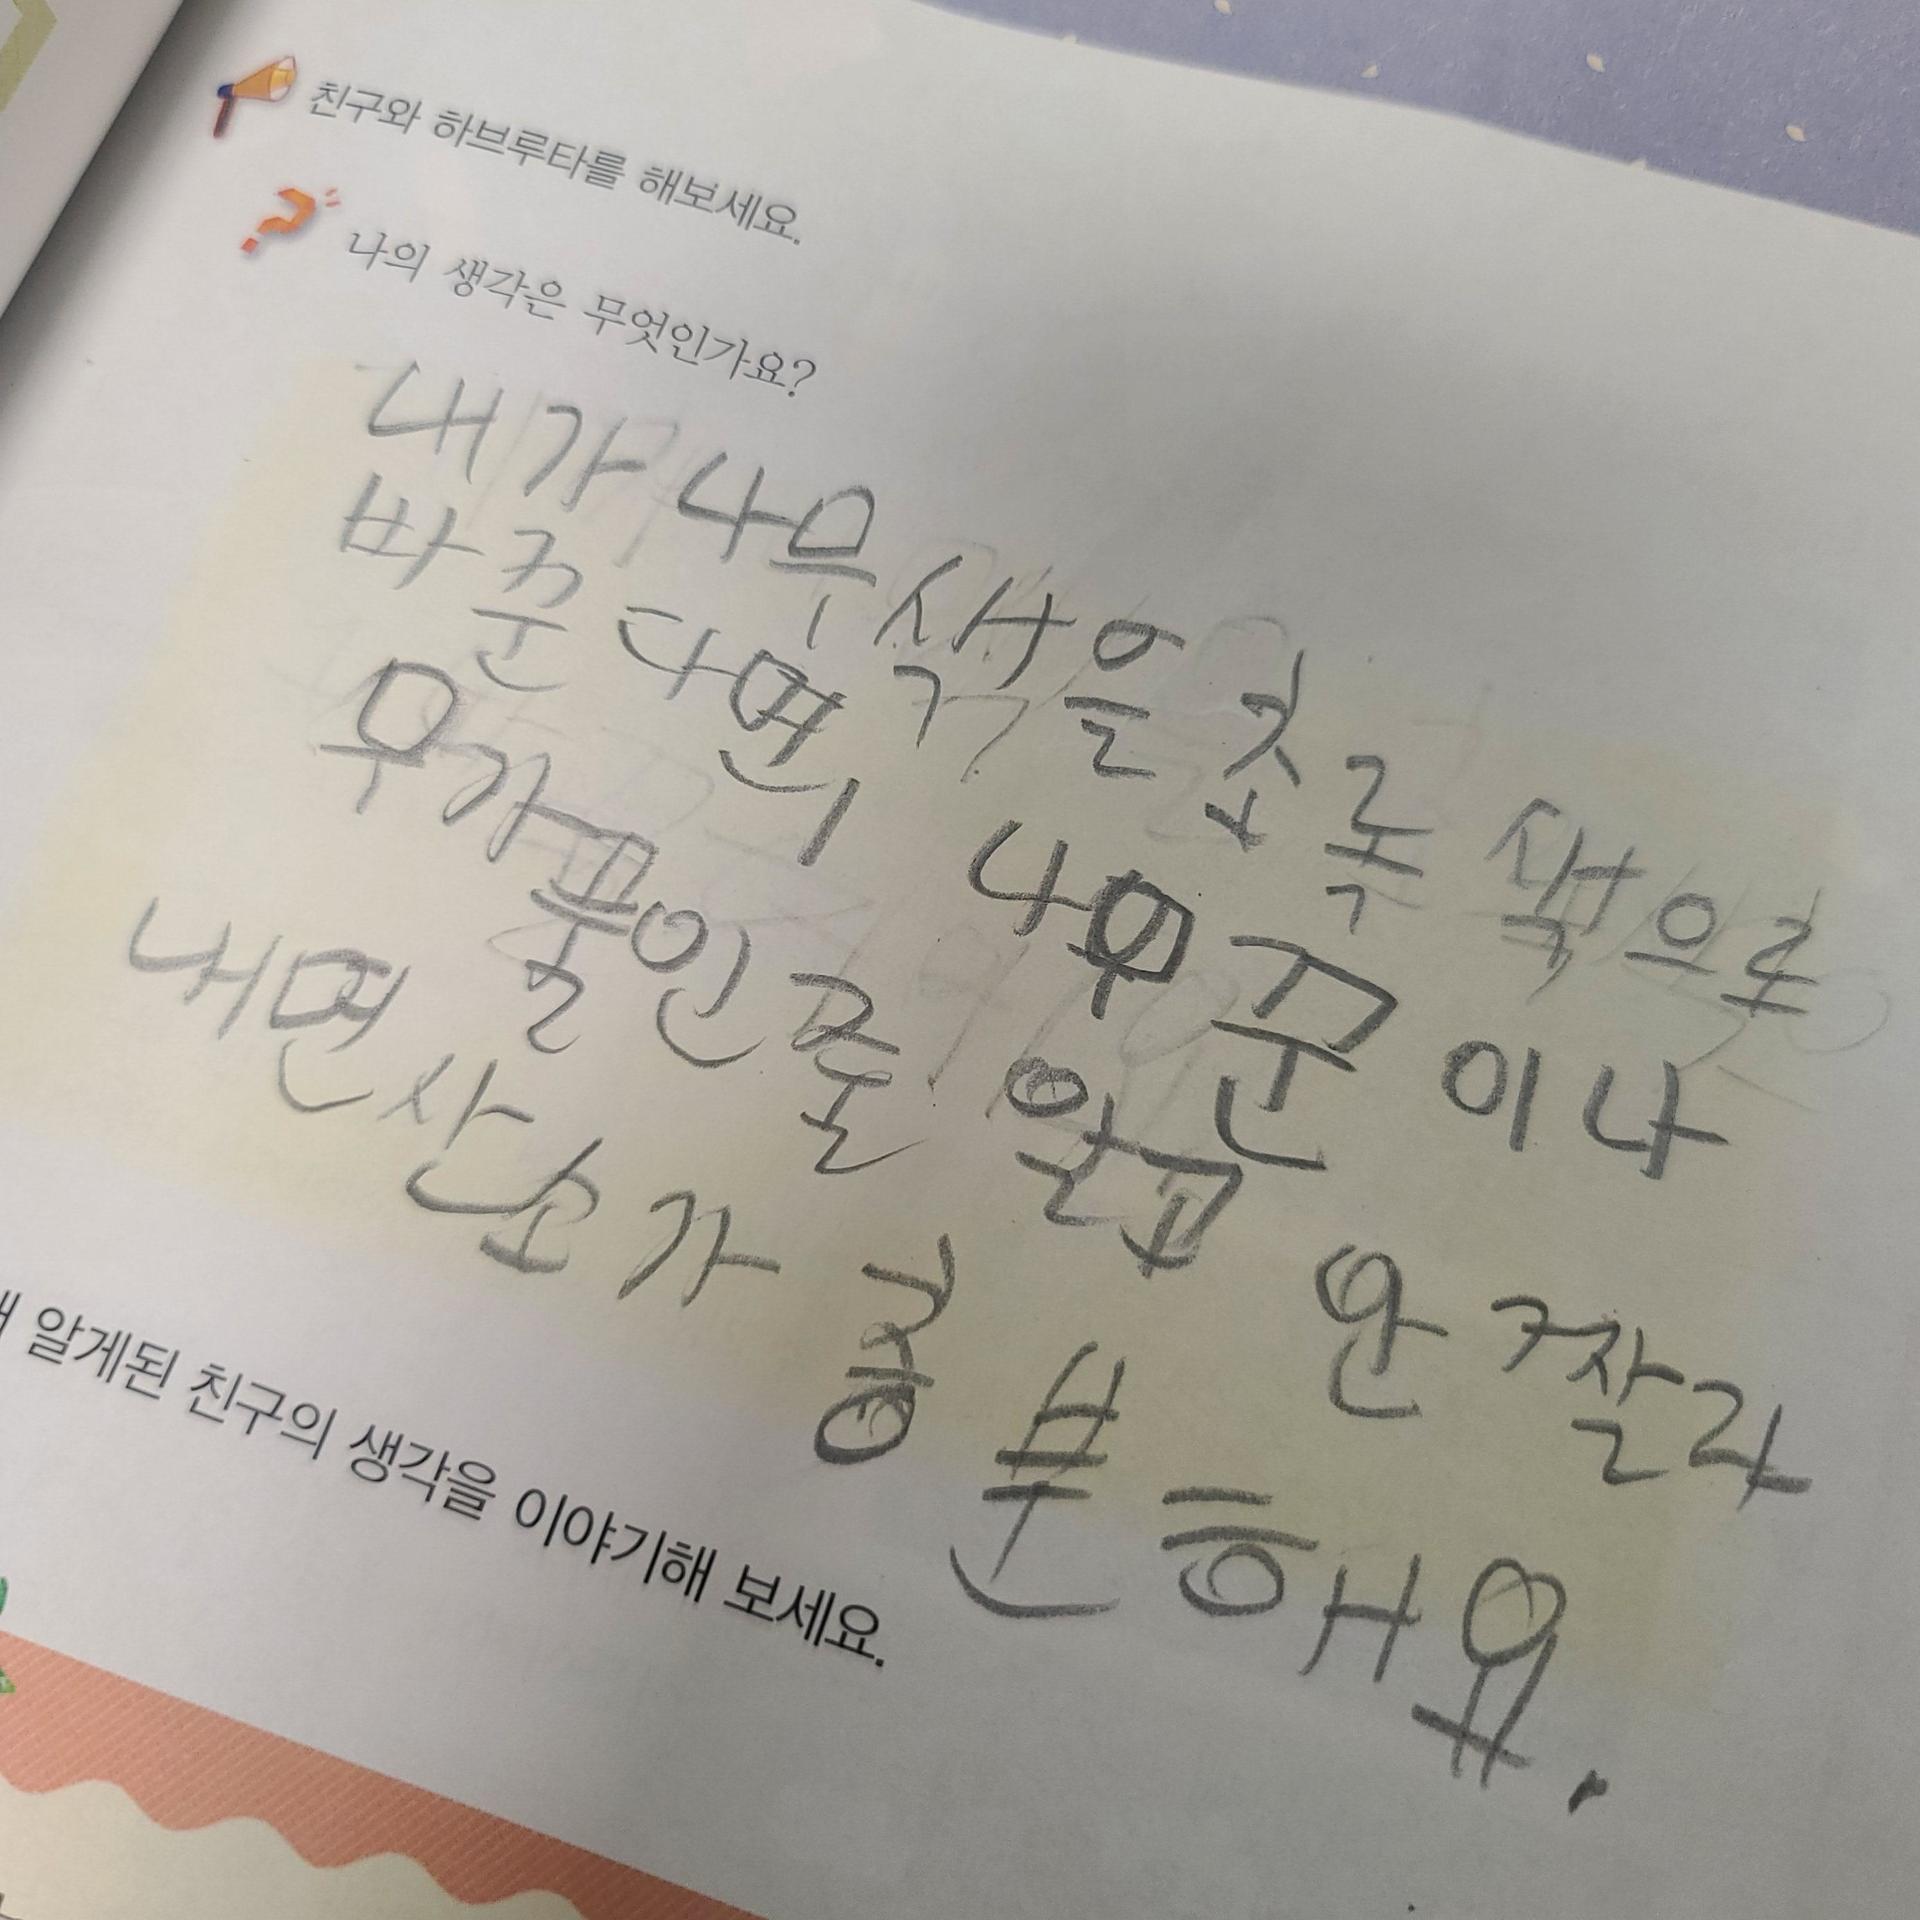 친구와 하브루타를 해보세요.
나의 생각은 무엇인가요?
내가 나무 색을 초록 색으로
바꾼다면 나무꾼이나
무가 풀인줄 알고 안 짤라
내면 산소가 충분해요.
알게된 친구의 생각을 이야기해 보세요.